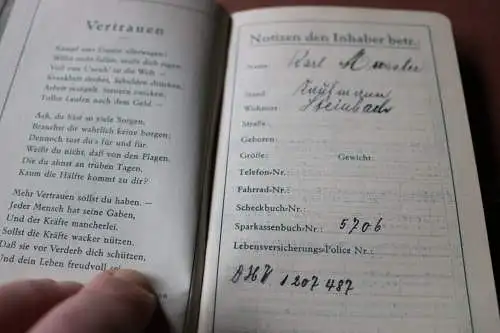 Vertrauen
Kampf ums Dasein allerwegen!
Willst nicht fallen, mußt dich regen
Voll von Unruh' ist die Welt —
Krankheit
Arbeit
Tolles Laufen nach dem Geld. —
Ach, du hast so viele Sorgen;
Brauchst dir wahrlich keine borgen;
Dennoch tust du's für und für.
Weißt du nicht, daß von den Plagen,
Die du ahnst an trüben Tagen,
Kaum die Hälfte kommt zu dir?
Mehr Vertrauen sollst du haben. —
Jeder Mensch hat seine Gaben,
Und der Kräfte mancherlei.
Sollst die Kräfte wacker nützen,
Daß sie vor Verderb dich schützen,
Und dein Leben freudvoll sei.
Notizen den Inhaber betr.
Name: Karl
Stand: Kaufmann
Wohnort: Steinbach
Straße:
Geboren:
Größe: Gewicht:
Telefon-Nr.
Fahrrad-Nr.
Scheckbuch-Nr.
Sparkassenbuch-Nr. 5706
Lebensversicherungs-Police Nr.
DHV 1207487